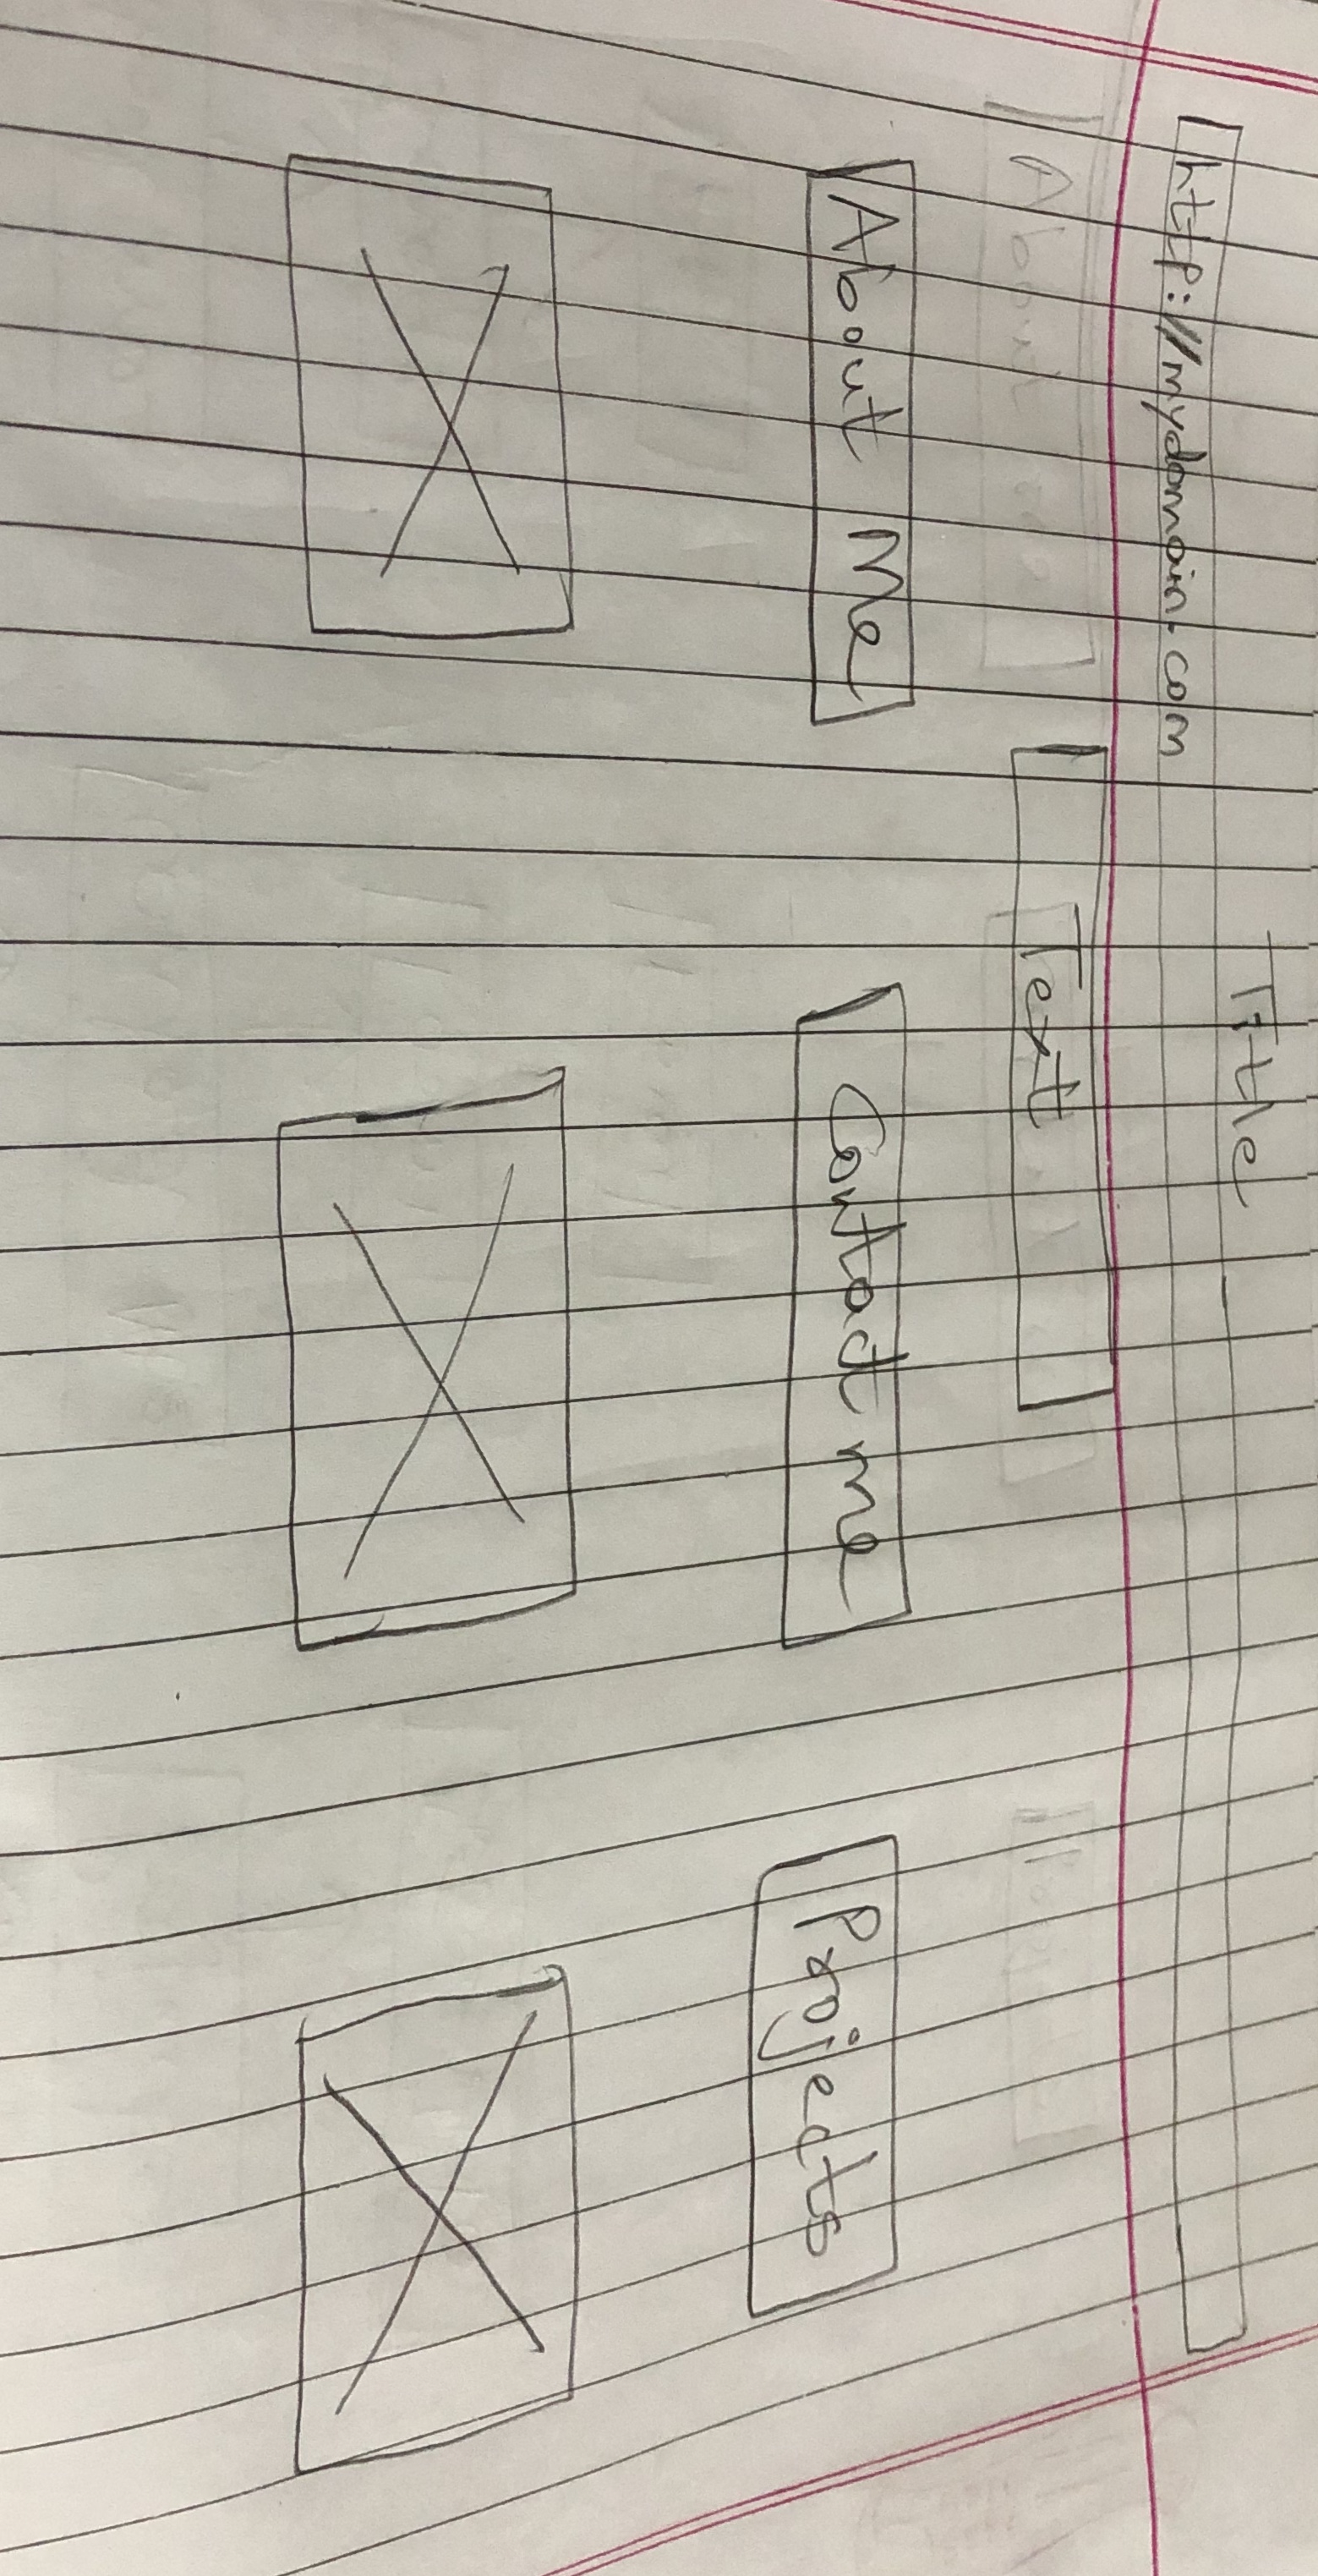 Title
http://mydomain.com
Text
About Me
Contact me
Projects